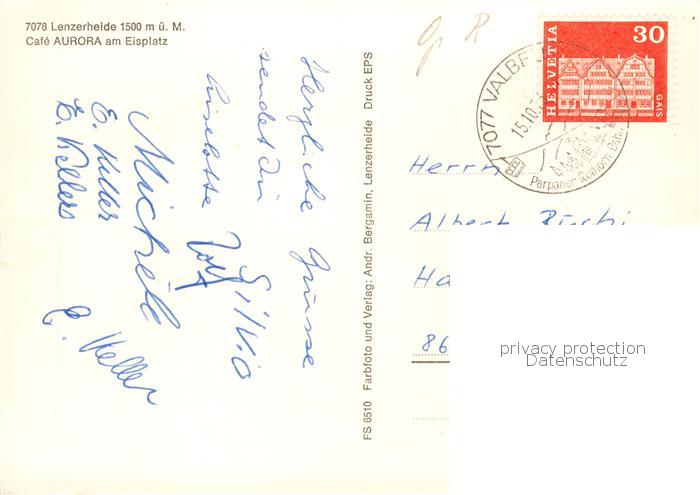 7078 Lenzerheide 1500 m ü. M.
Café AURORA am Eisplatz
Herzliche Grüsse
sendet Dir
Liselotte
Silvio
Rolf
Michele
E. Keller
E. Kellers
E. Keller
FS 6510 Farbfoto und Verlag: Andr. Bergamin, Lenzerheide Druck EPS
HELVETIA
30
GAIS
7077 VALBE
15.10.
Parpaner Rothorn Bahn
Herrn
Albert
Ha
86
privacy protection
Datenschutz